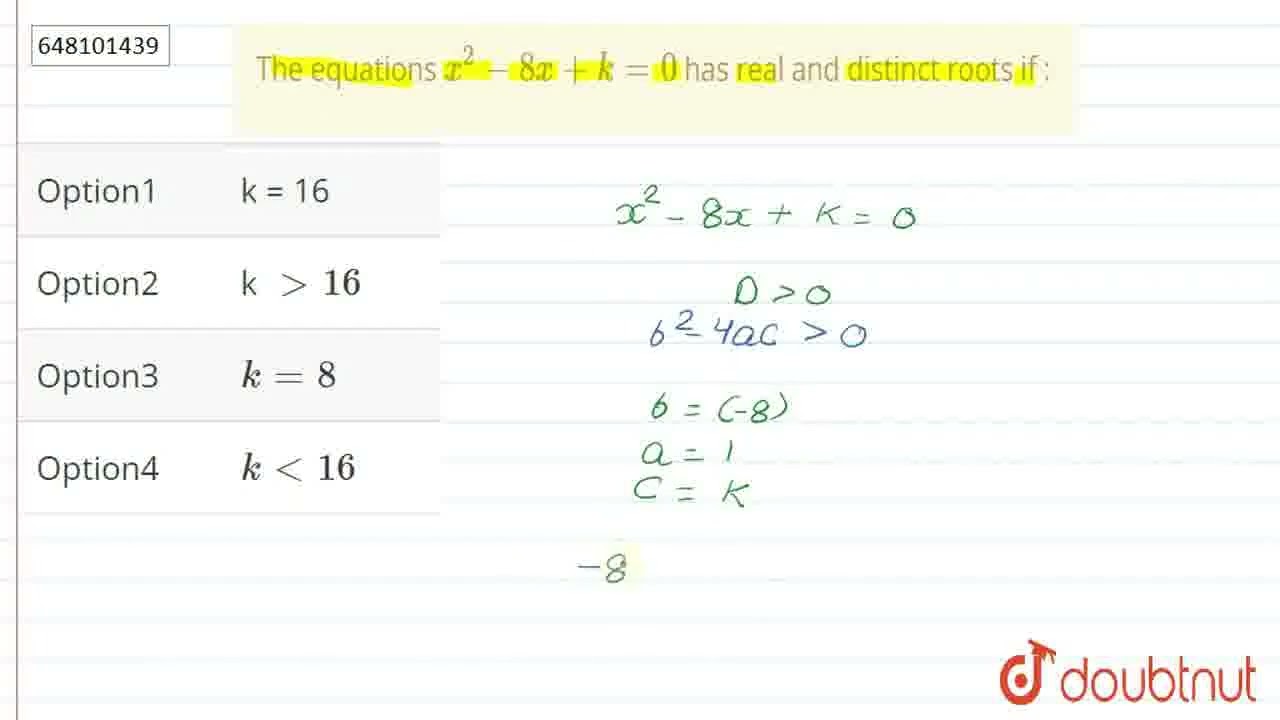 648101439
The equations x² − 8x + k = 0 has real and distinct roots if :
Option1 k = 16
Option2 k > 16
Option3 k = 8
Option4 k < 16
x² - 8x + K = 0
D > 0
b² - 4ac > 0
b = (-8)
a = 1
C = K
-8
doubtnut